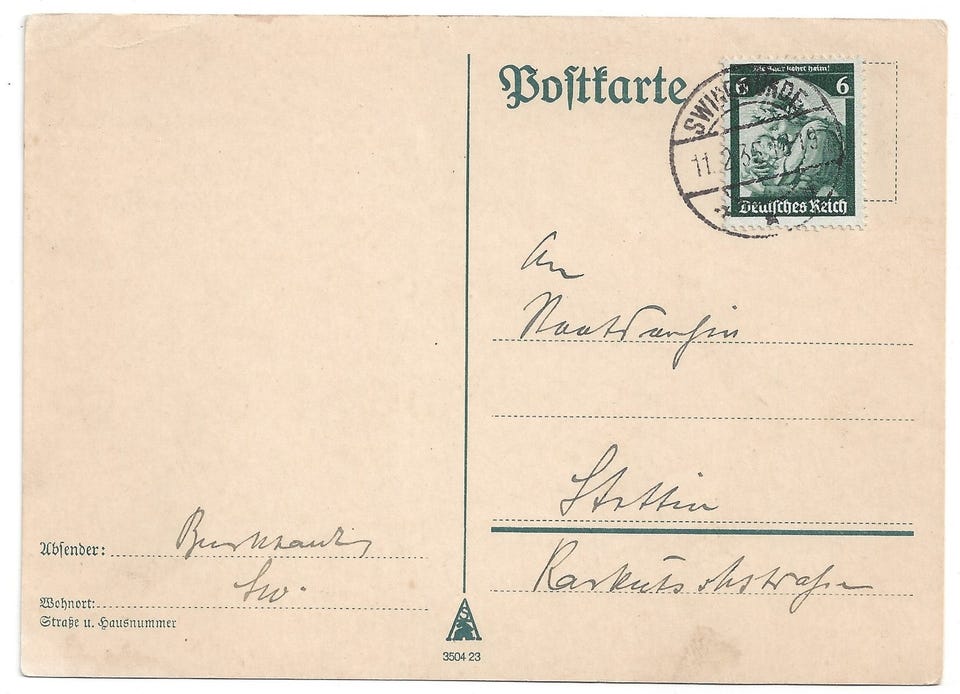 Postkarte
Die Saar kehrt heim!
6 6
SWINEMÜNDE
11.2.35
Deutsches Reich
An
Staatsarchiv
Stettin
Karkutschstraße
Absender: Burkhardt
Sw.
Wohnort:
Straße u. Hausnummer
3504 23